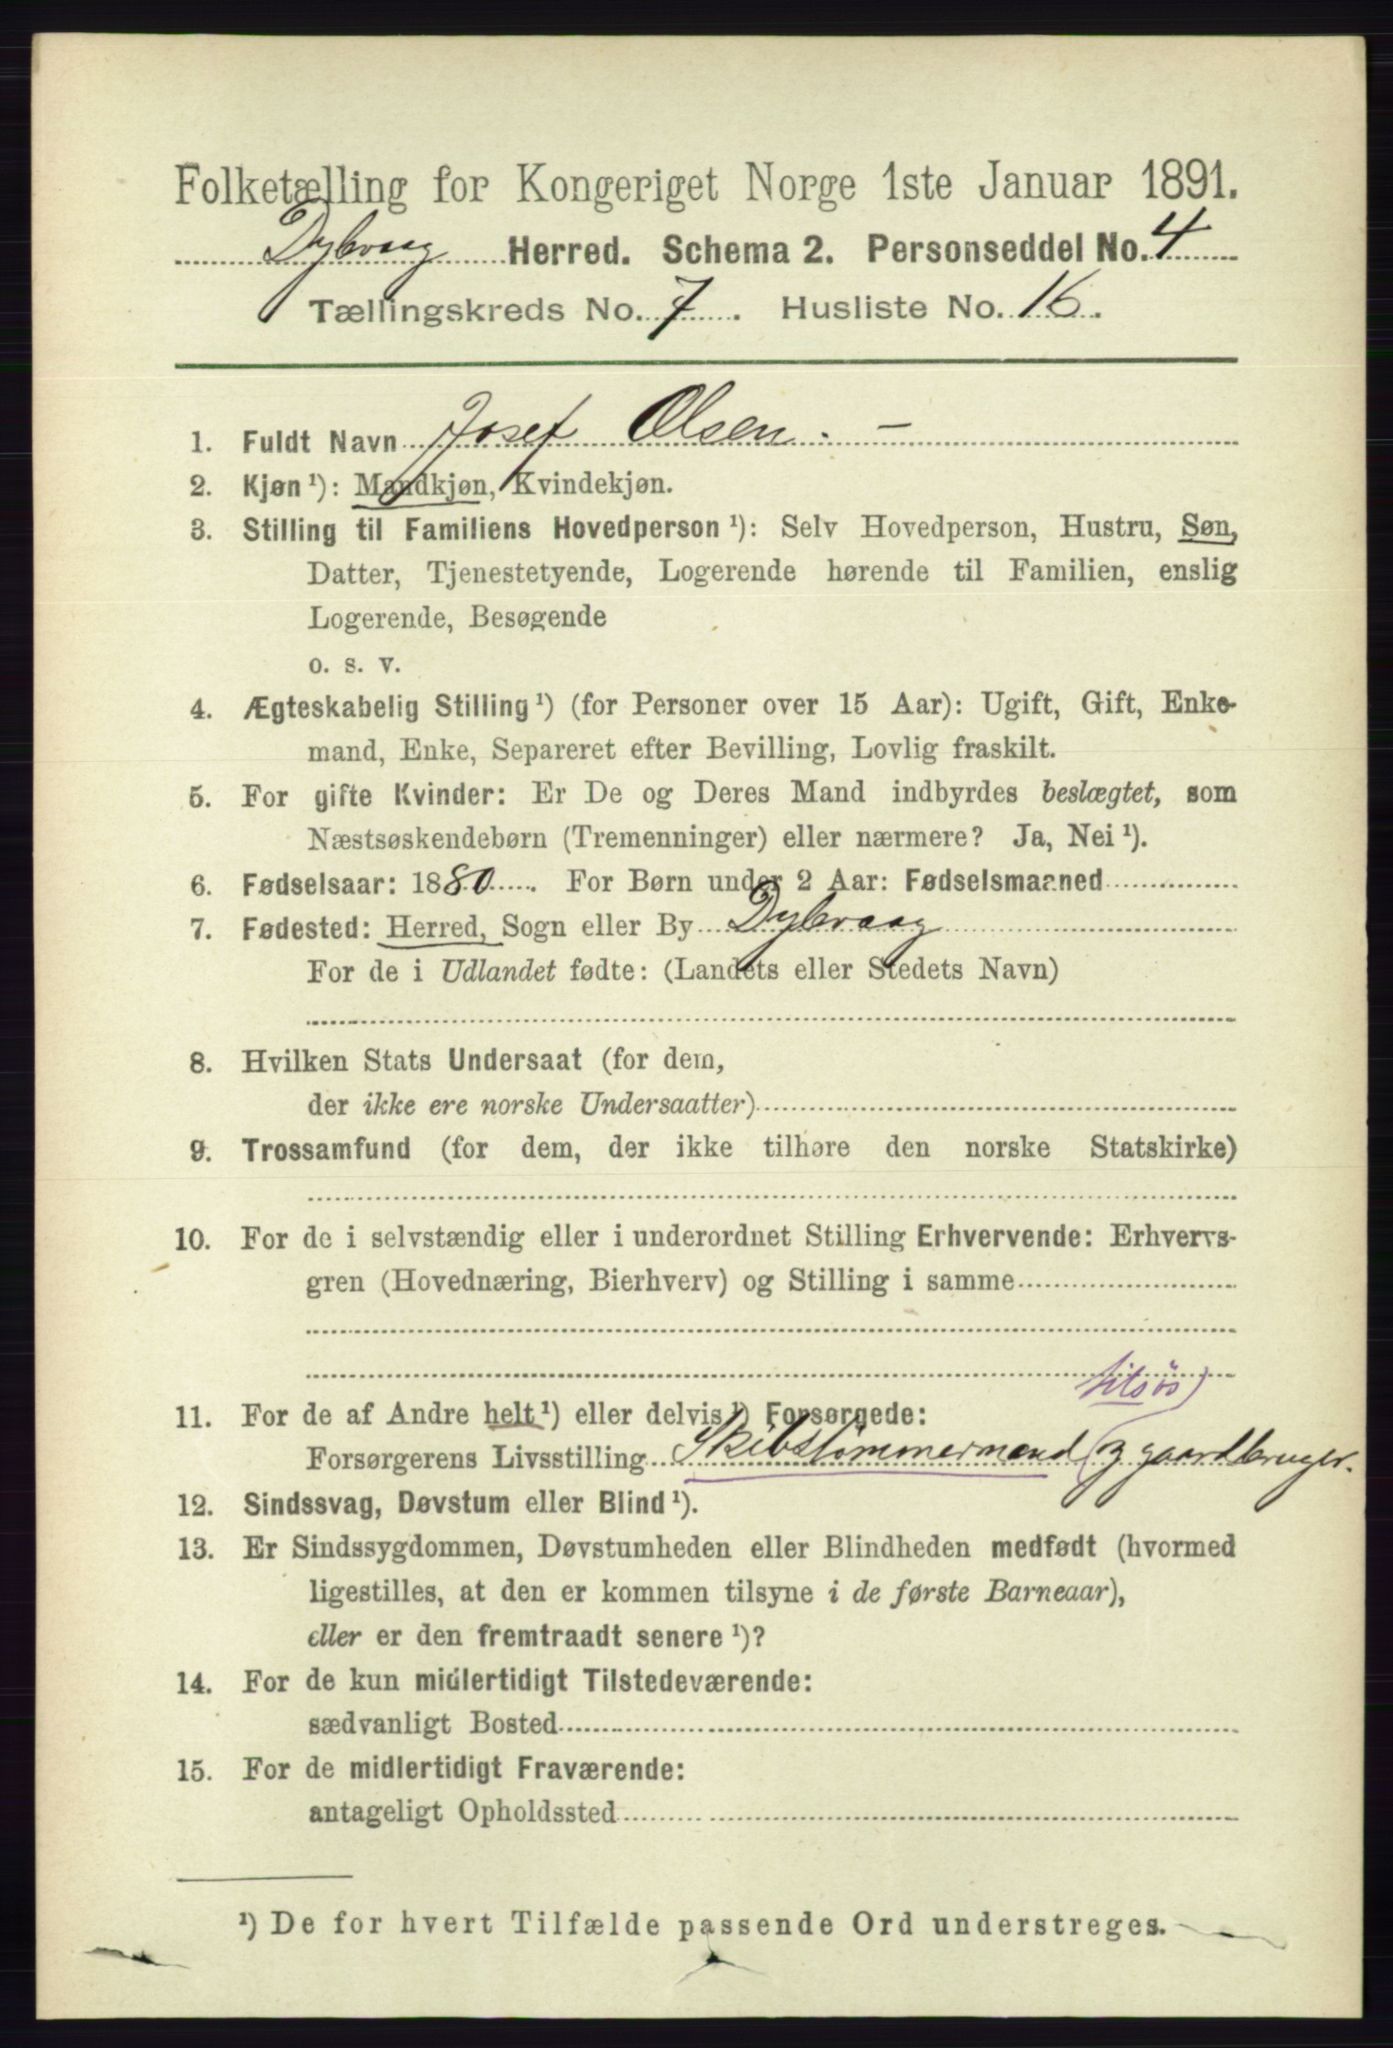 Folketælling for Kongeriget Norge 1ste Januar 1891.
Dybvaag Herred. Schema 2. Personseddel No. 4
Tællingskreds No. 7. Husliste No. 16.
1. Fuldt Navn Josef Olsen. –
2. Kjøn ¹): Mandkjøn, Kvindekjøn.
3. Stilling til Familiens Hovedperson ¹): Selv Hovedperson, Hustru, Søn,
Datter, Tjenestetyende, Logerende hørende til Familien, enslig
Logerende, Besøgende
o. s. v.
4. Ægteskabelig Stilling ¹) (for Personer over 15 Aar): Ugift, Gift, Enke-
mand, Enke, Separeret efter Bevilling, Lovlig fraskilt.
5. For gifte Kvinder: Er De og Deres Mand indbyrdes beslægtet, som
Næstsøskendebørn (Tremenninger) eller nærmere? Ja, Nei ¹).
6. Fødselsaar: 1880. For Børn under 2 Aar: Fødselsmaaned
7. Fødested: Herred, Sogn eller By Dybvaag
For de i Udlandet fødte: (Landets eller Stedets Navn)
8. Hvilken Stats Undersaat (for dem,
der ikke ere norske Undersaatter)
9. Trossamfund (for dem, der ikke tilhøre den norske Statskirke)
10. For de i selvstændig eller i underordnet Stilling Erhvervende: Erhvervs-
gren (Hovednæring, Bierhverv) og Stilling i samme
tilsøs)
11. For de af Andre helt ¹) eller delvis ¹) Forsørgede:
Forsørgerens Livsstilling Skibstømmermand (og gaardbruger.
12. Sindssvag, Døvstum eller Blind ¹).
13. Er Sindssygdommen, Døvstumheden eller Blindheden medfødt (hvormed
ligestilles, at den er kommen tilsyne i de første Barneaar),
eller er den fremtraadt senere ¹)?
14. For de kun midlertidigt Tilstedeværende:
sædvanligt Bosted
15. For de midlertidigt Fraværende:
antageligt Opholdssted
¹) De for hvert Tilfælde passende Ord understreges.